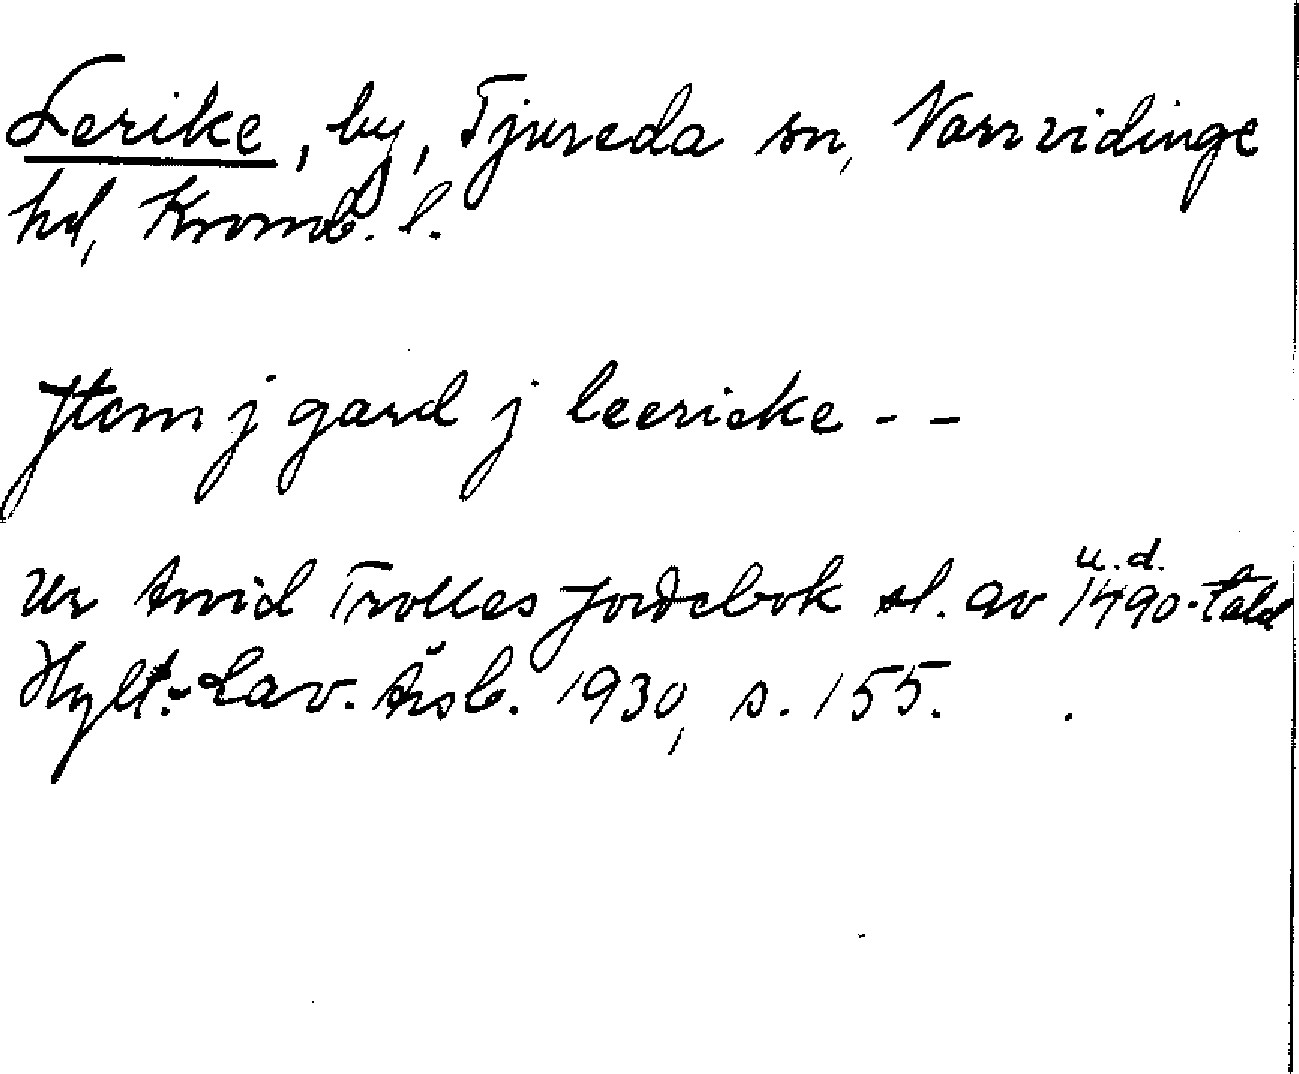 Lerike, by, Tjureda sn, Norrvidinge
hd, Kronob. l.
Jtem j gard j leericke - -
u.d.
Ur Arvid Trolles Jordebok sl. av 1490-talet
Hylt.-Cav. Årsb. 1930, s. 155.